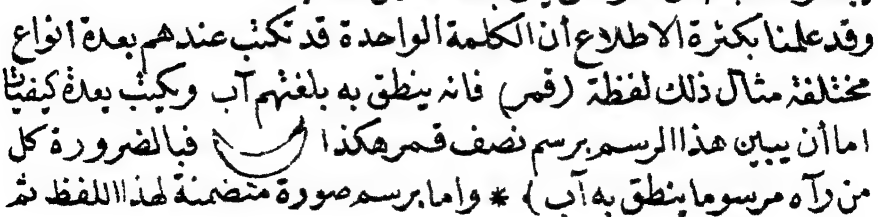 وقد علمنا بكثرة الاطلاع أن الكلمة الواحدة قد تكتب عندهم بعدة أنواع
مختلفة مثال ذلك لفظة (قمر) فانه ينطق به بلغتهم آب ويكتب بعدة كيفيات
اما أن يبين هذا الرسم برسم نصف قمر هكذا فبالضرورة كل
من رآه مرسوما ينطق به آب ) * واما برسم صورة متضمنة لهذا اللفظ ثم